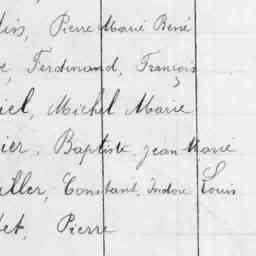 lis, Pierre Marie René
e, Ferdinand, François
iel, Michel Marie
ier, Baptiste, Jean Marie
aller, Constant, Isidore Louis
let, Pierre